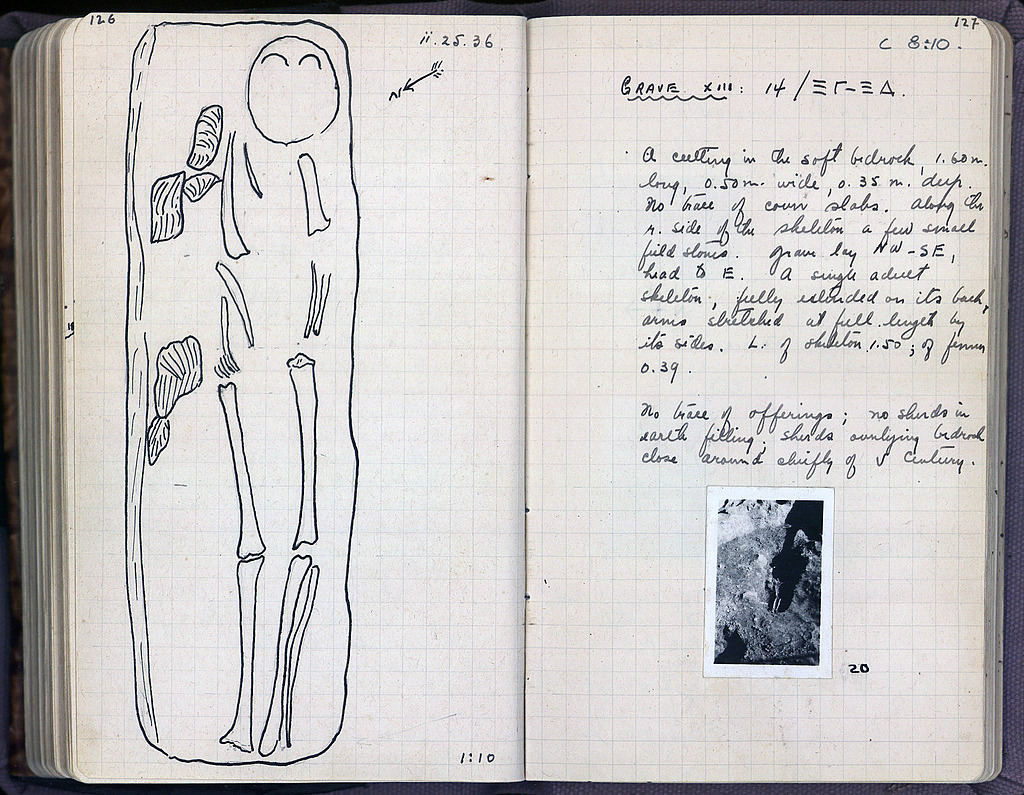 126
ii.25.36.
N
1:10
127
C 8:10.
GRAVE XIII: 14/ΞΓ-ΞΔ.
A cutting in the soft bedrock, 1.60 m.
long, 0.50 m. wide, 0.35 m. deep.
No trace of cover slabs. Along the
r. side of the skeleton a few small
field stones. Grave lay NW-SE,
head to E. A single adult
skeleton, fully extended on its back,
arms stretched at full length by
its sides. L. of skeleton 1.50; of femur
0.39.
No trace of offerings; no sherds in
earth filling; sherds overlying bedrock
close around chiefly of V Century.
20